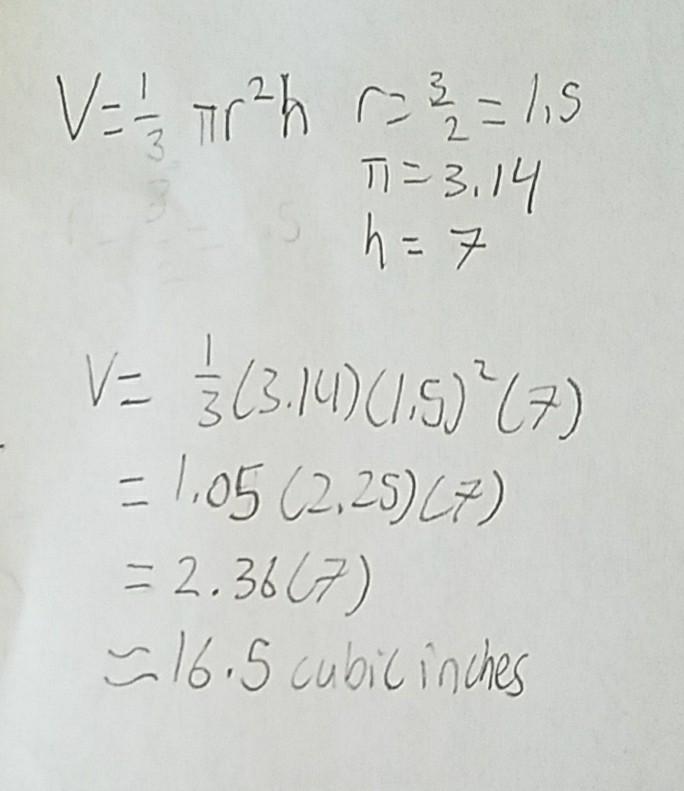 V = 1/3 πr²h r = 3/2 = 1.5
π = 3.14
h = 7
V = 1/3 (3.14)(1.5)²(7)
= 1.05 (2.25)(7)
= 2.36(7)
≈ 16.5 cubic inches